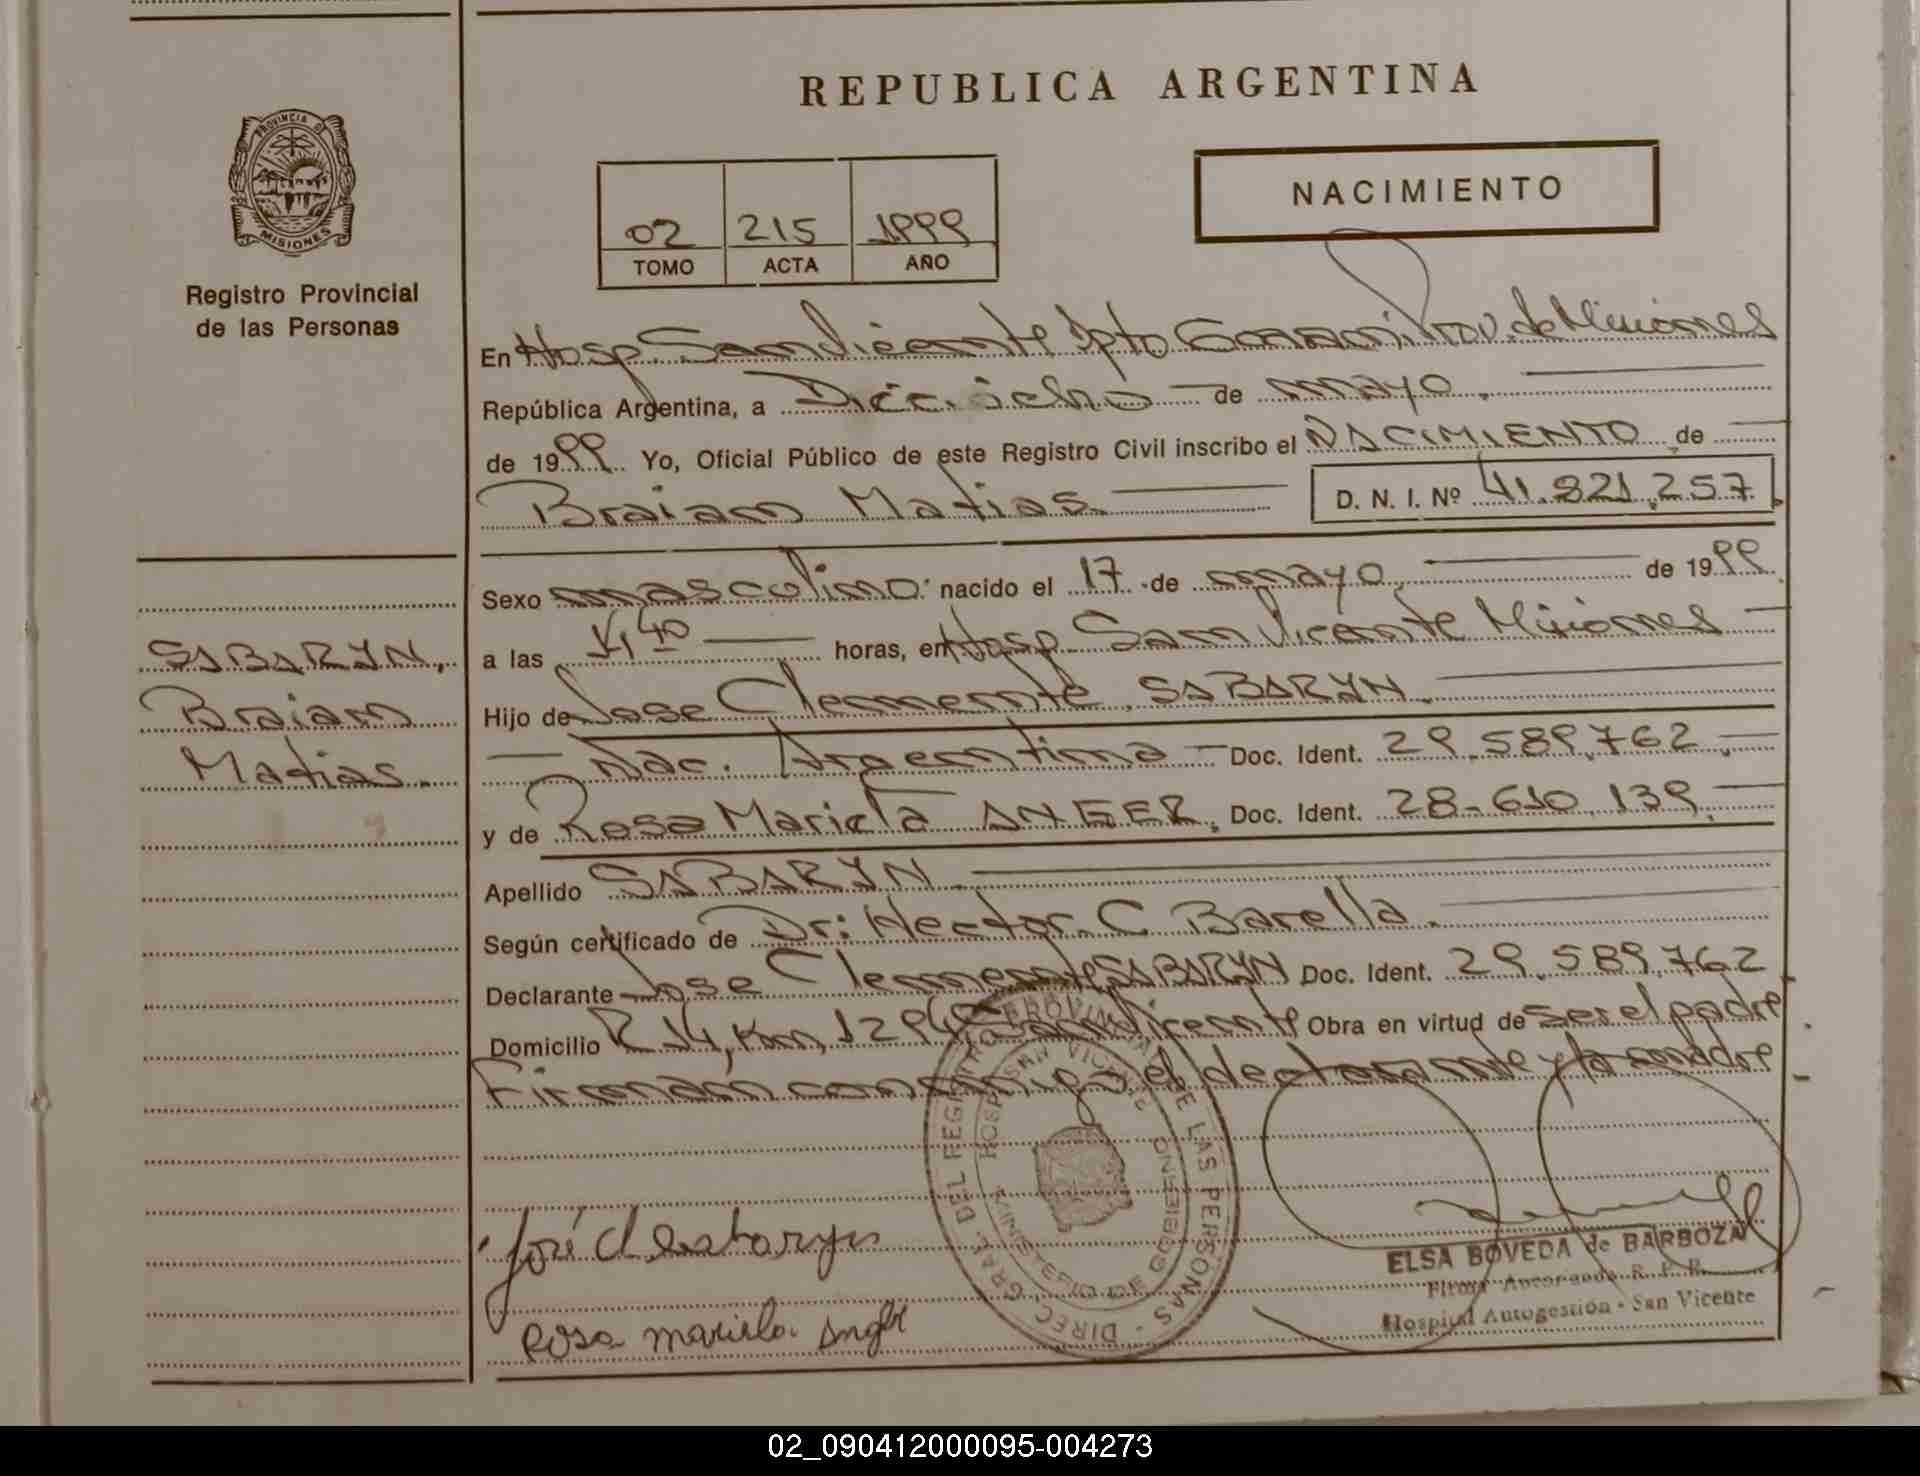 REPUBLICA ARGENTINA
PROVINCIA D
MISIONES
Registro Provincial
de las Personas
NACIMIENTO
02 215 1999
TOMO ACTA AÑO
En Hosp. San Vicente Dpto Guarani Prov. de Misiones
República Argentina, a Dieciocho de mayo.
de 1999 Yo, Oficial Público de este Registro Civil inscribo el NACIMIENTO de
Braian Matias. D. N. I. Nº 41.821.257
Sexo masculino nacido el 17 de mayo de 1999
a las horas, en Hosp San Vicente Misiones
Hijo de Jose Clemente SABARYN.
Nac. Argentina Doc. Ident. 29.589.762
y de Rosa Mariela ANGER. Doc. Ident. 28.610.139
Apellido SABARYN
Según certificado de Dr: Hector C Barella.
Declarante Jose Clemente SABARYN Doc. Ident. 29.589.762
Domicilio R 14, Km, San Vicente Obra en virtud de ser el padre
Firman conmigo el declarante y la madre
SABARYN,
Braian
Matias.
DIREC. GRAL. DEL REGISTRO PROVINCIAL DE LAS PERSONAS
HOSP. SAN VICENTE
MINISTERIO DE GOBIERNO
José
Rosa mariela
ELSA BOVEDA de BARBOZA
Firma Autorizada R. P. P.
Hospital Autogestión - San Vicente
02_090412000095-004273